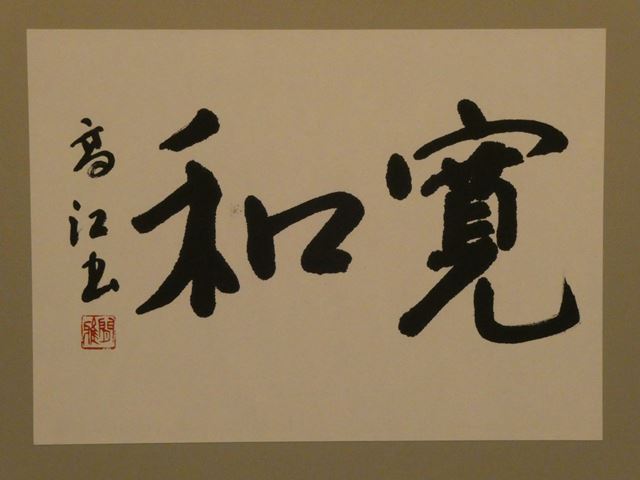 寛和
高江书